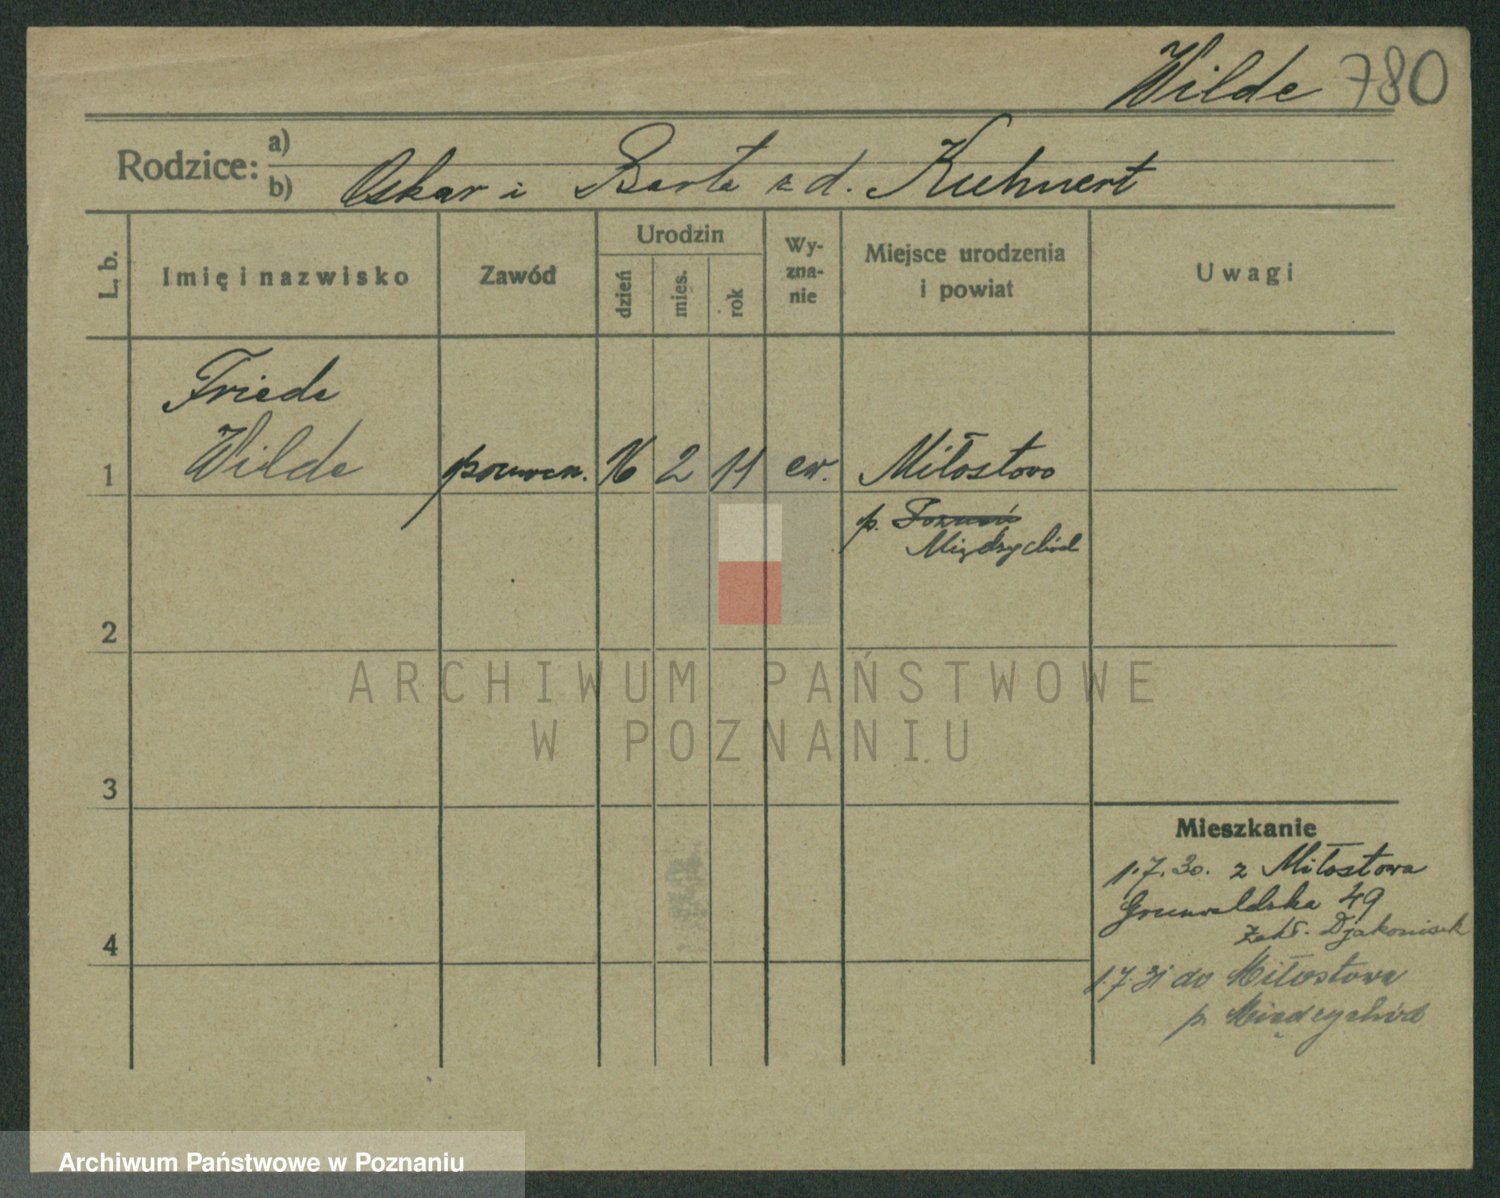 Wilde 780
Rodzice: a)
b) Oskar i Berta z d. Kuhnert
L. b.
Imię i nazwisko
Zawód
Urodzin
dzień
mies.
rok
Wy-
zna-
nie
Miejsce urodzenia
i powiat
Uwagi
Frieda
1 Wilde 16 2 11 ew. Miłostowo
p. Poznań
Międzychód
2
3
4
Mieszkanie
1.7.30. z Miłostowa
Grunwaldzka 49
Zakł. Djakonisek
1.7.31 do Miłostowa
p. Międzychód
ARCHIWUM PAŃSTWOWE
W POZNANIU
Archiwum Państwowe w Poznaniu